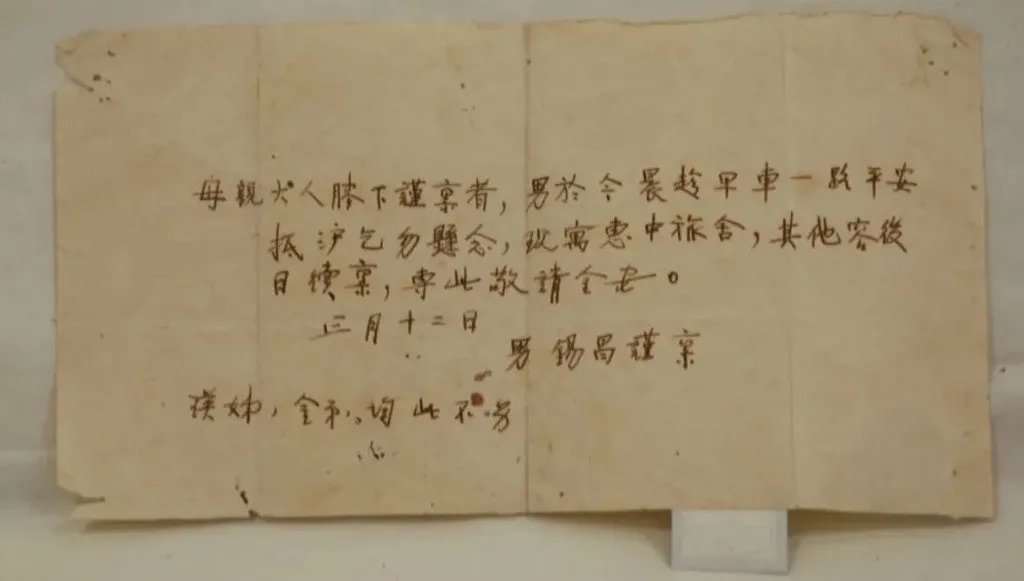 母親大人膝下謹稟者，男於今晨趁早車一路平安
抵沪乞勿懸念，現寓惠中旅舍，其他容後
日續稟，專此敬請金安。
正月十二日
男錫昌謹稟
瑛姊，金弟，均此不另